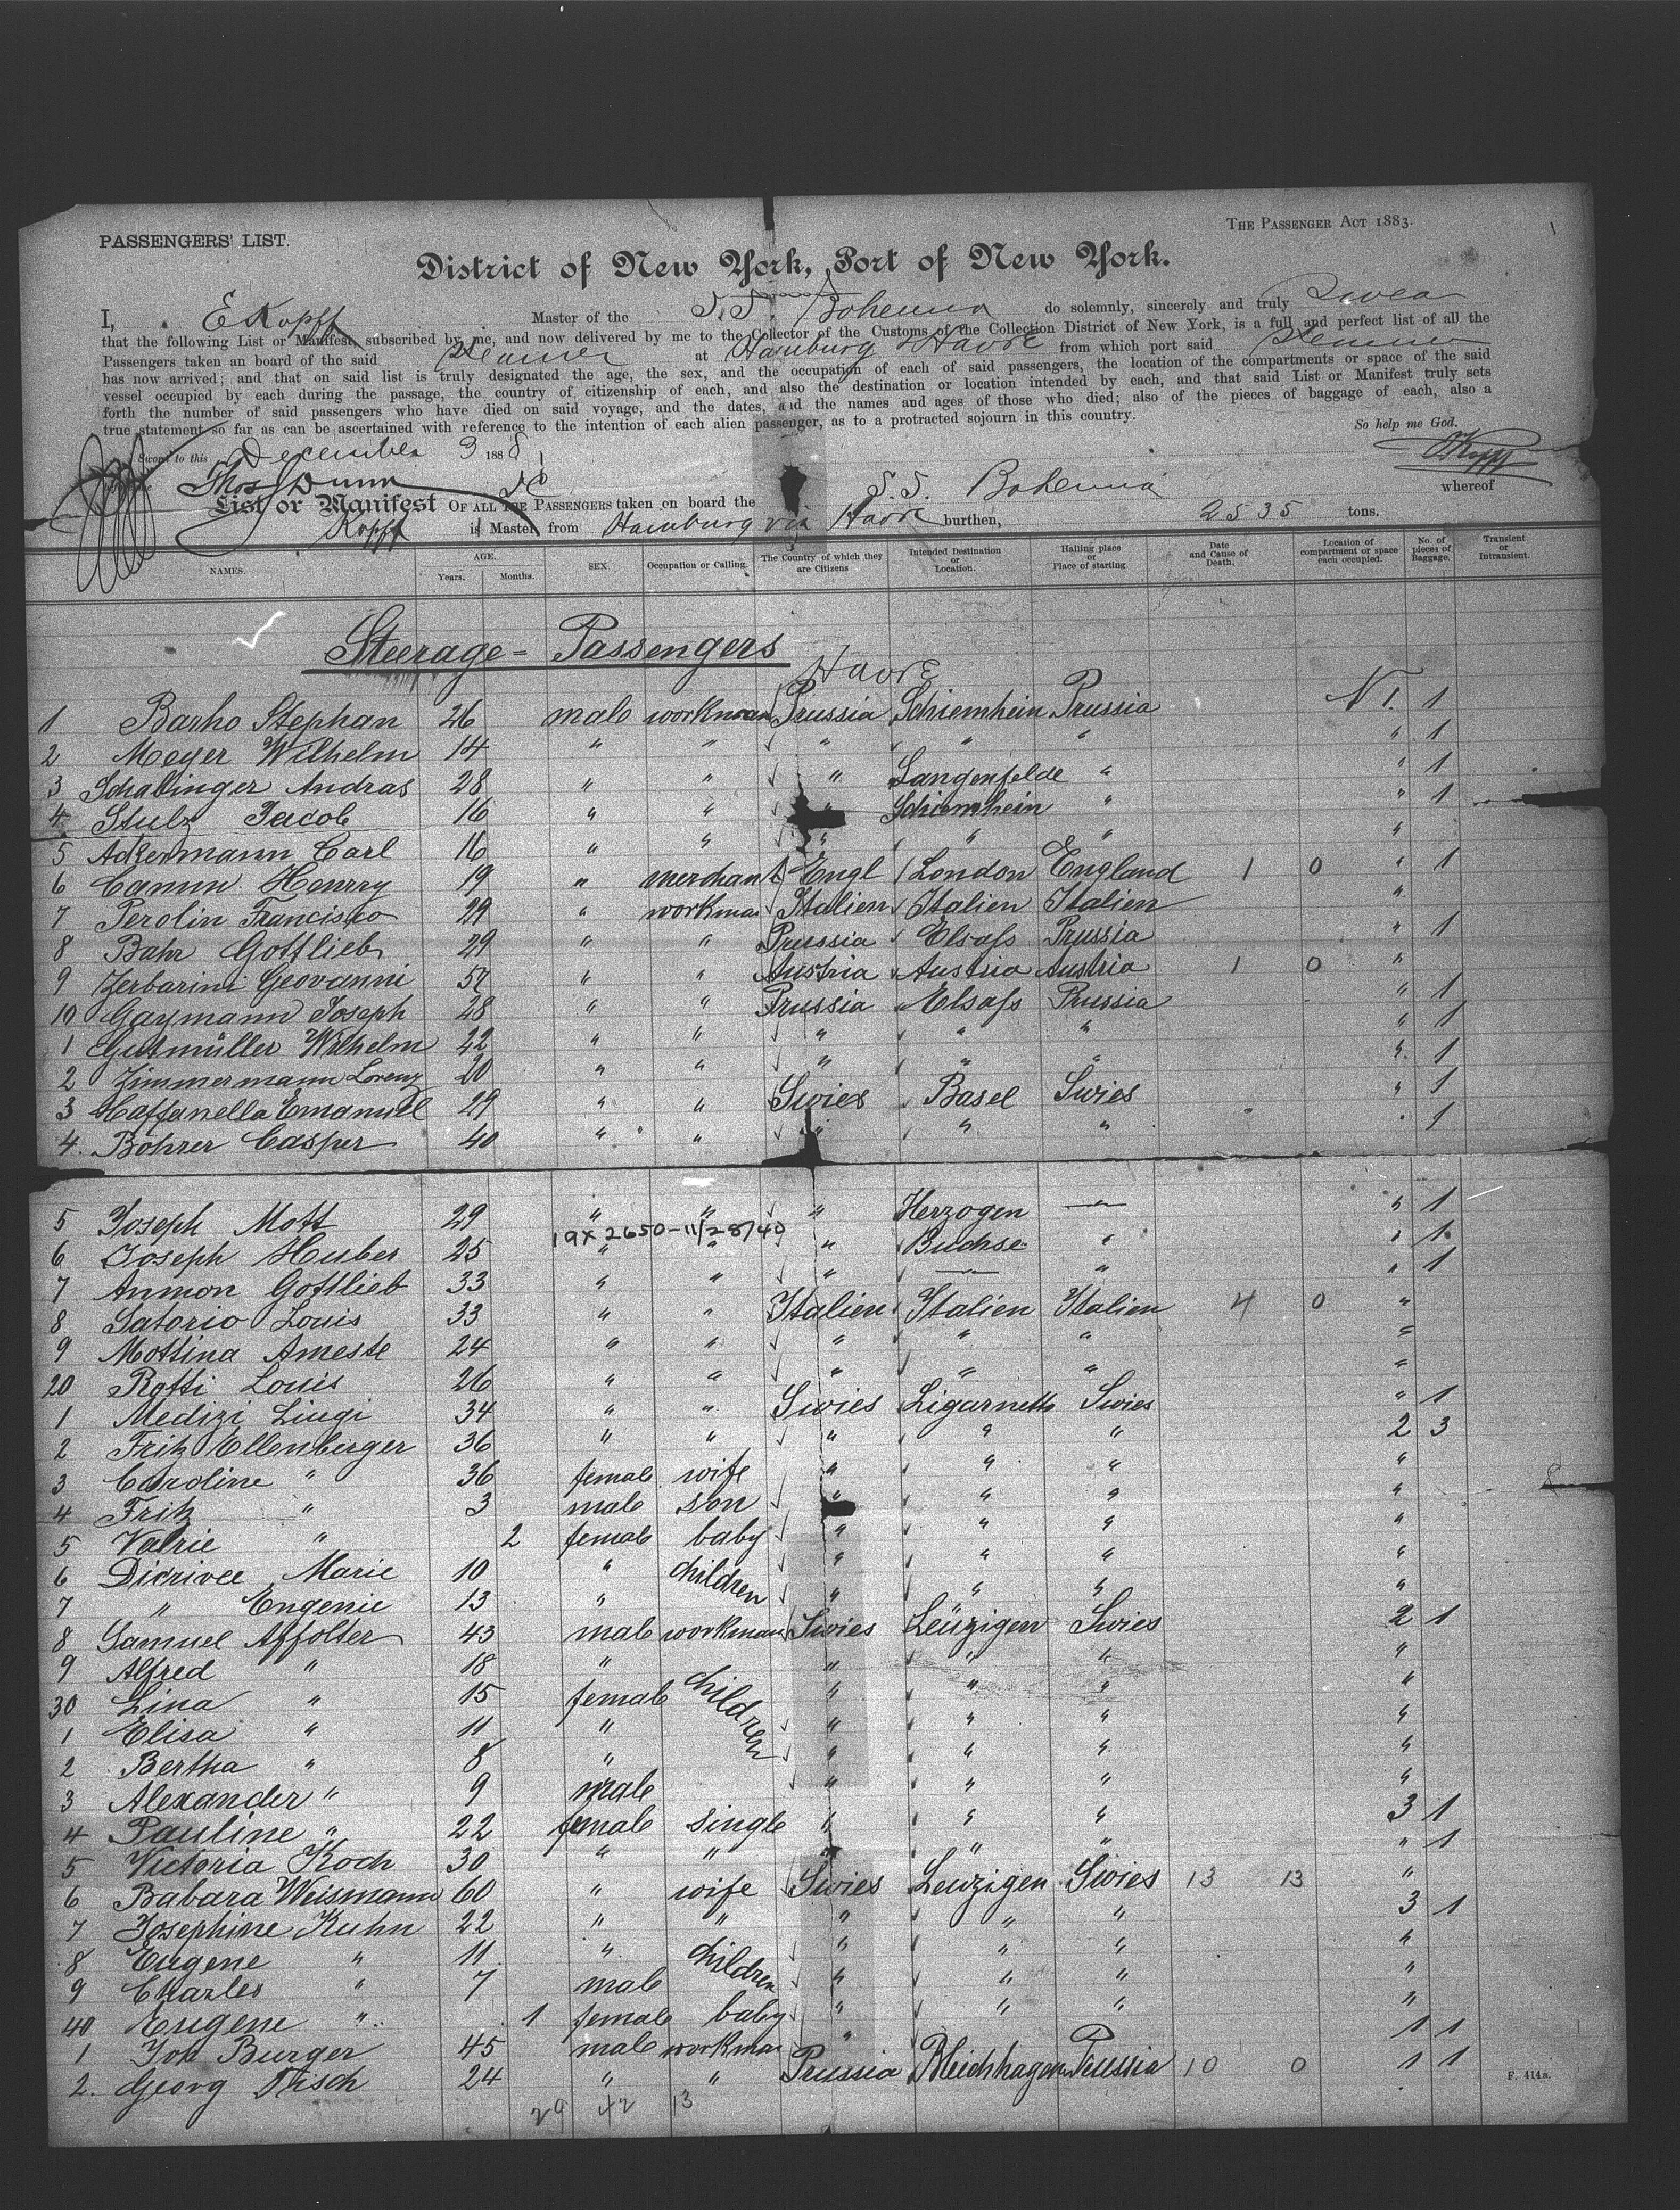 PASSENGERS' LIST.
THE PASSENGER ACT 1883.
District of New York, Port of New York.
I, E Kopff Master of the S.S. Bohemia do solemnly, sincerely and truly Swear
that the following List or Manifest, subscribed by me, and now delivered by me to the Collector of the Customs of the Collection District of New York, is a full and perfect list of all the
Passengers taken an board of the said Steamer at Hamburg Havre from which port said Steamer
has now arrived; and that on said list is truly designated the age, the sex, and the occupation of each of said passengers, the location of the compartments or space of the said
vessel occupied by each during the passage, the country of citizenship of each, and also the destination or location intended by each, and that said List or Manifest truly sets
forth the number of said passengers who have died on said voyage, and the dates, and the names and ages of those who died; also of the pieces of baggage of each, also a
true statement so far as can be ascertained with reference to the intention of each alien passenger, as to a protracted sojourn in this country. So help me God.
Sworn to this December 3 1888 EKopff
Thos Dunn
List or Manifest OF ALL THE PASSENGERS taken on board the S.S. Bohemia whereof
Kopff is Master from Hamburg via Havre burthen, 2535 tons.
NAMES. AGE. Years. Months. SEX. Occupation or Calling. The Country of which they are Citizens Intended Destination or Location. Halting place or Place of starting. Date and Cause of Death. Location of compartment or space each occupied. No. of pieces of Baggage. Transient or Intransient.
Steerage = Passengers
Havre
1 Barho Stephan 26 male workman Prussia Schiemhein Prussia N 1. 1
2 Meyer Wilhelm 14 " " " " " " 1
3 Schallinger Andras 28 " " " Langenfelde " " 1
4 Stulz Jacob 16 " " " Schiemhein " " 1
5 Ackermann Carl 16 " " " " " "
6 Canun Henrry 19 " merchant Engl London England 1 0 " 1
7 Perolin Francisco 29 " workman Italien Italien Italien "
8 Bahr Gottlieb 29 " " Prussia Elsaß Prussia " 1
9 Zerbarini Geovanni 57 " " Austria Austria Austria 1 0 "
10 Gaymann Joseph 28 " " Prussia Elsaß Prussia " 1
1 Gutmüller Wilhelm 22 " " " " " " 1
2 Zimmermann Lorenz 20 " " " " " " 1
3 Haffanella Emanuel 29 " " Swies Basel Swies " 1
4. Bohrer Casper 40 " " " " " " 1
5 Joseph Mott 29 " " " Herzogen — " 1
19x 2650-11/28/40
6 Joseph Huber 25 " " " Buchse " " 1
7 Anmon Gottlieb 33 " " " — " " 1
8 Satorio Louis 33 " " Italien Italien Italien 4 0 "
9 Mottina Ameste 24 " " " " " "
20 Rotti Louis 26 " " " " " "
1 Medizi Liugi 34 " " Swies Ligarnetto Swies " 1
2 Fritz Ellenberger 36 " " " " " 2 3
3 Caroline " 36 female wife " " " "
4 Fritz " 3 male son " " " "
5 Valrie " 2 female baby " " " "
6 Dicrivee Marie 10 " children " " " "
7 " Engenie 13 " " " " "
8 Samuel Affolter 43 male workman Swies Leuzigen Swies 2 1
9 Alfred " 18 " " " " "
30 Lina " 15 female children " " " "
1 Elisa " 11 " " " " "
2 Bertha " 8 " " " " "
3 Alexander " 9 male " " " "
4 Pauline " 22 female single " " " 3 1
5 Victoria Koch 30 " " " " " " 1
6 Babara Weismann 60 " wife Swies Leuzigen Swies 13 13 "
7 Josephine Kuhn 22 " " " " " 3 1
8 Eugene " 11 " children " " " "
9 Charles " 7 male " " " "
40 Eugene " 1 female baby " " " "
1 Joh Burger 45 male workman " 1 1
2. Georg Tisch 24 " " Prussia Bleichhagen Prussia 10 0 1 1
29 42 13
F. 414a.